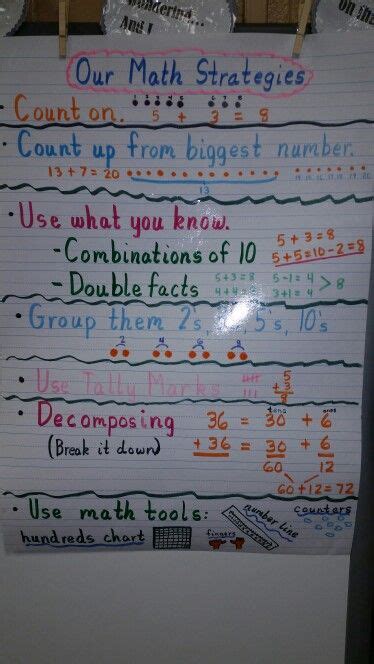 And I
on ihe
Our Math Strategies
· Count on. 5 + 3 = 8
· Count up from biggest number.
13 + 7 = 20
13
· Use what you know.
5 + 3 = 8
- Combinations of 10
5 + 5 = 10 - 2 = 8
- Double facts
5 + 3 = 8
5 - 1 = 4
> 8
4 + 4 =
3 + 1 = 4
· Group them 2's, 5's, 10's
2 4 6 8
· Use Tally Marks
5
+ 3
8
· Decomposing
tens ones
36 = 30 + 6
(Break it down)
+ 36 = 30 + 6
60 12
60 + 12 = 72
· Use math tools:
number line
counters
hundreds chart
fingers